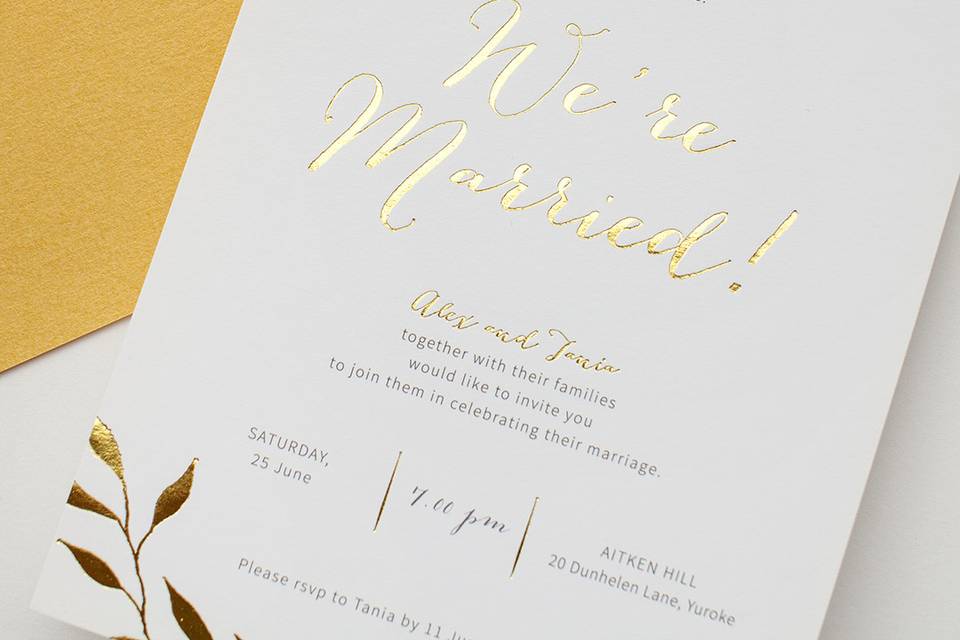 We're
Married!
Alex and Tania
together with their families
would like to invite you
to join them in celebrating their marriage.
SATURDAY,
25 June
7.00 pm
AITKEN HILL
20 Dunhelen Lane, Yuroke
Please rsvp to Tania by 11